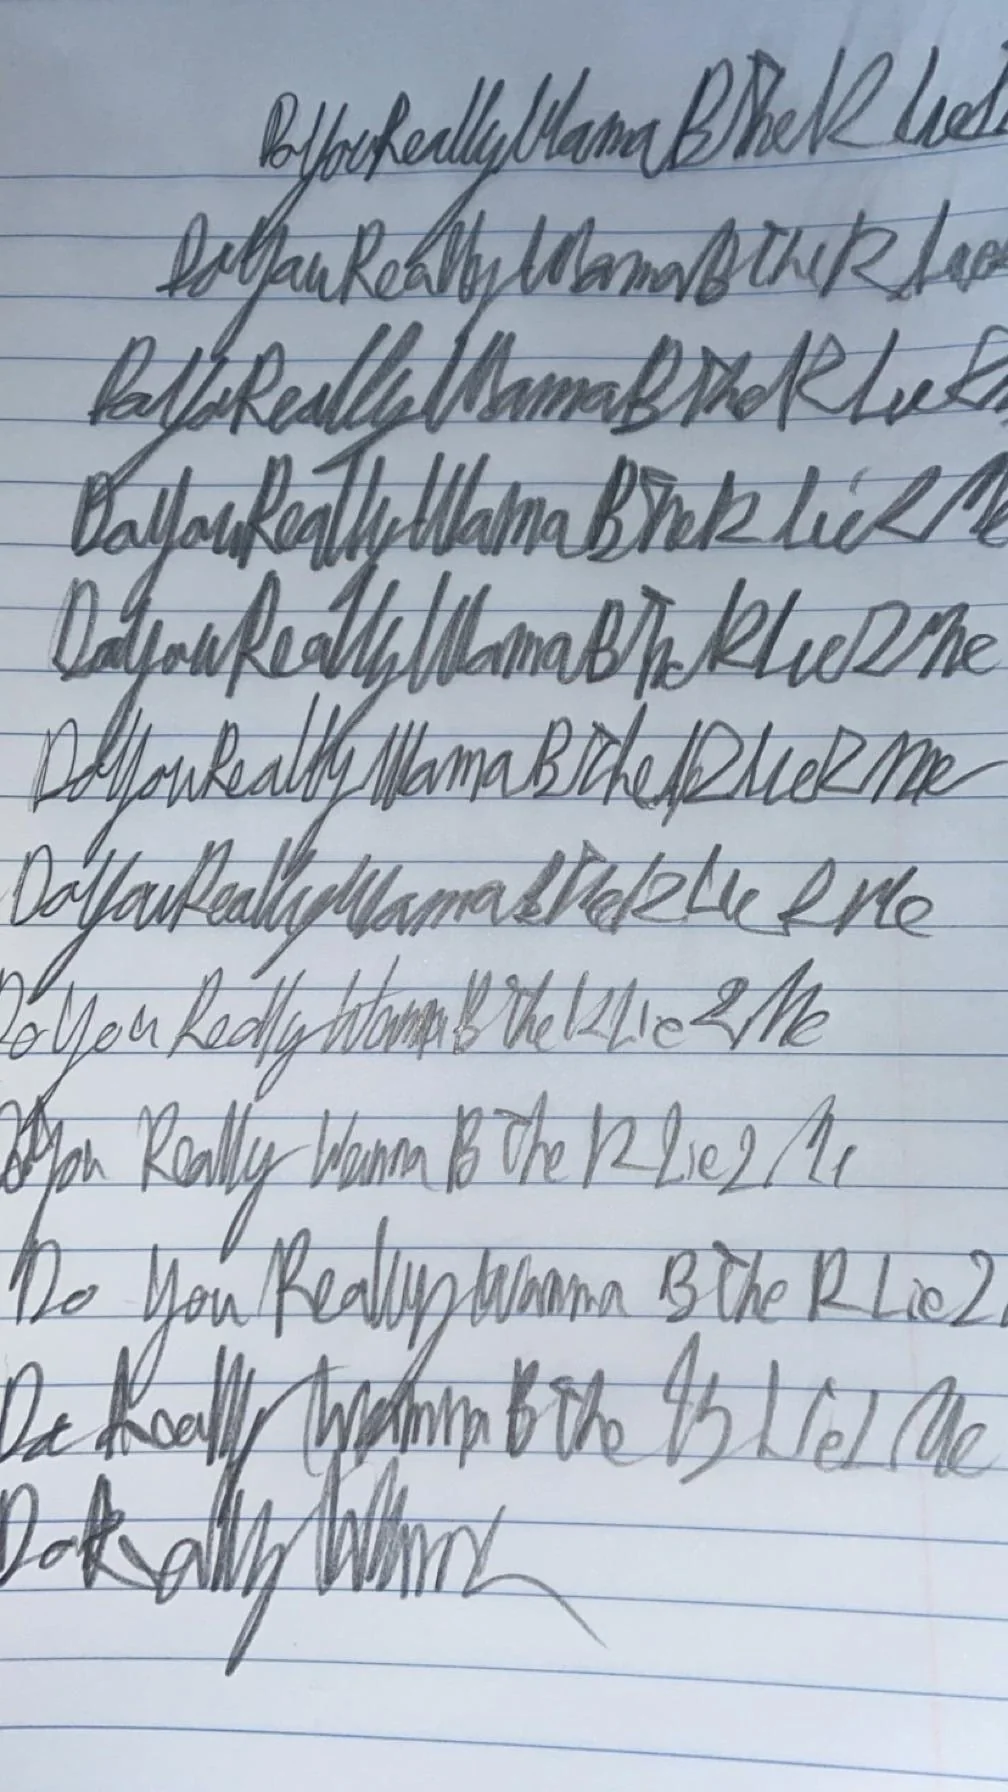 DoYouReallyWannaBTheRLie2
DoYouReallyWannaBTheRLie
DoYouReallyWannaBTheRLie2
DoYouReallyWannaBTheRLie2M
DoYouReallyWannaBTheRLie2Me
DoYouReallyWannaBTheRLie2Me
DoYouReallyWannaBTheRLie2Me
Do You Really Wanna B The R Lie 2 Me
You Really Wanna B The R Lie 2 Me
Do You Really Wanna B The R Lie 2
Really Wanna B The Lie 2 Me
Do Really